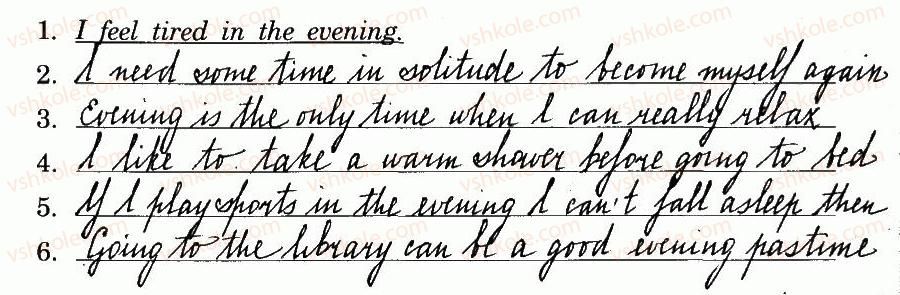 1. I feel tired in the evening.
2. I need some time in solitude to become myself again
3. Evening is the only time when I can really relax
4. I like to take a warm shower before going to bed
5. If I play sports in the evening I can't fall asleep then
6. Going to the library can be a good evening pastime